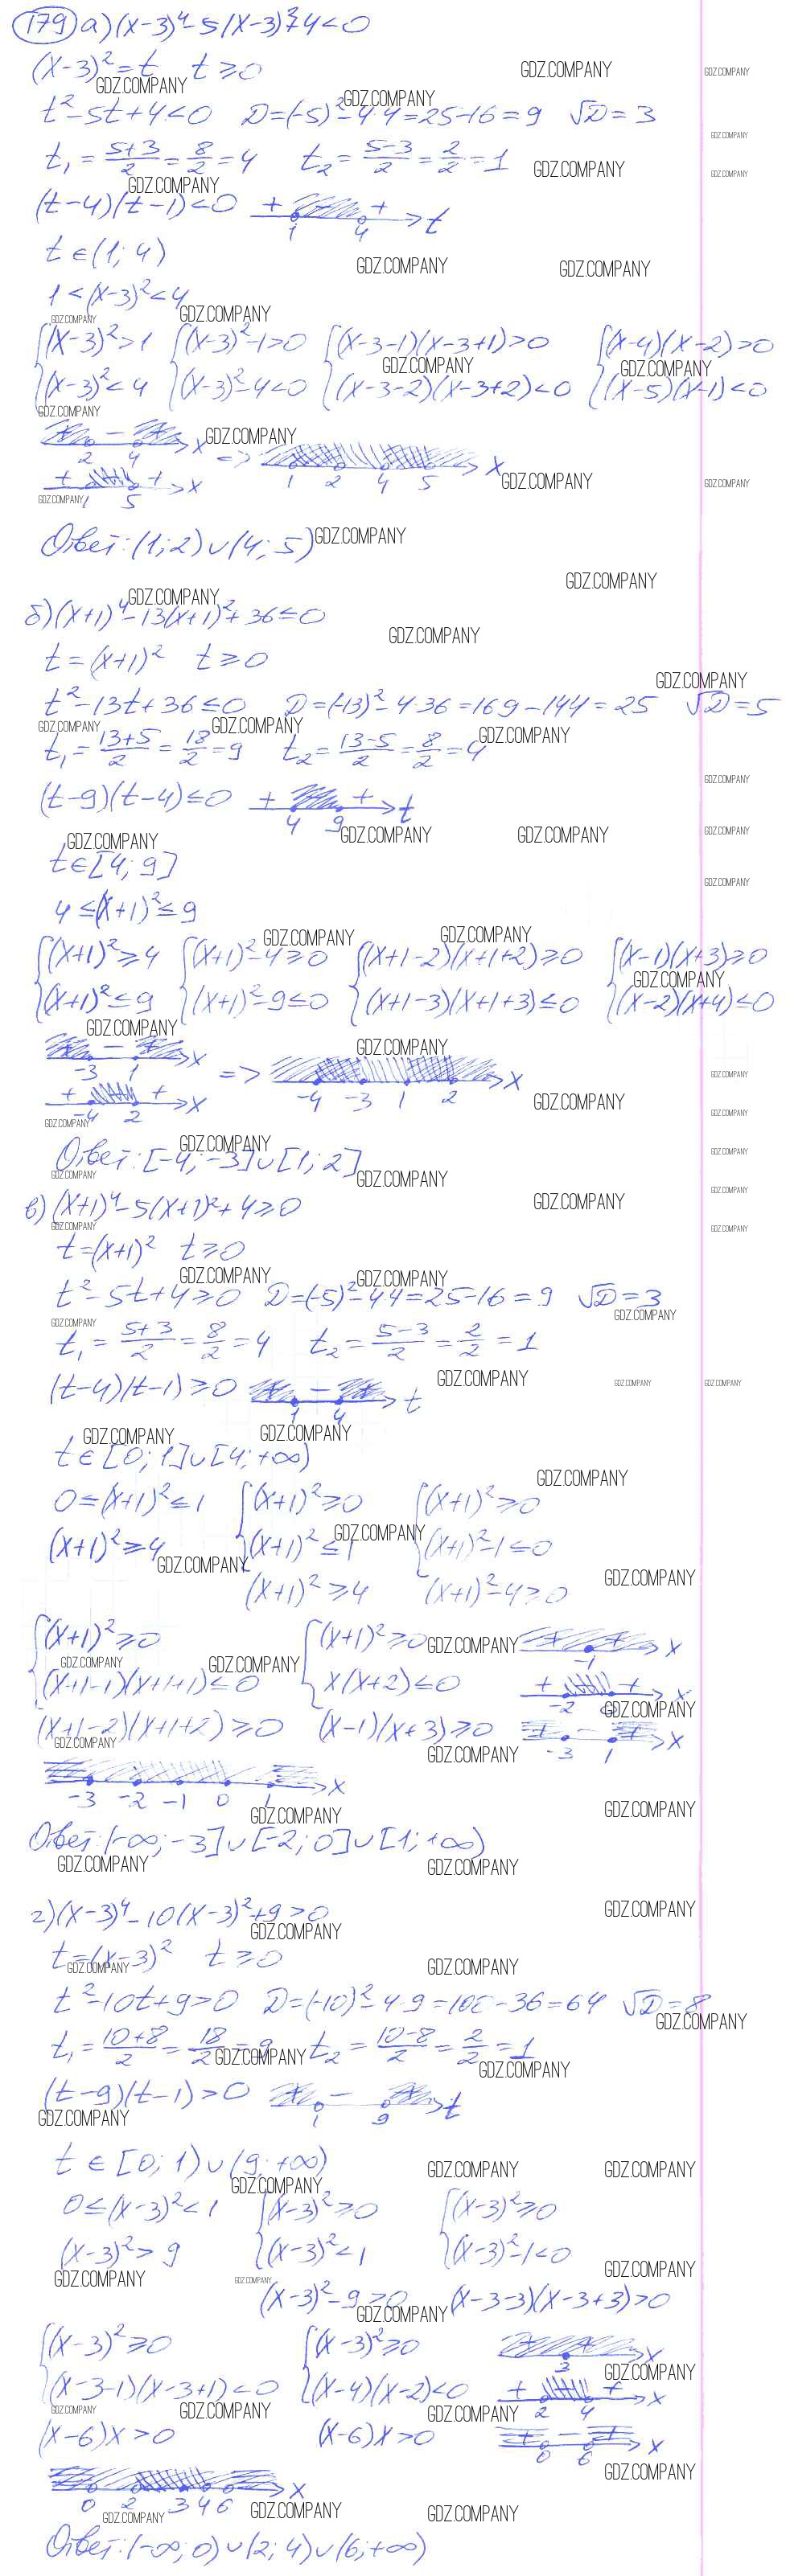 179 а) (x-3)⁴-5(x-3)²+4<0
(x-3)²=t t≥0
t²-5t+4<0 D=(-5)²-4·4=25-16=9 √D=3
t₁=(5+3)/2=8/2=4 t₂=(5-3)/2=2/2=1
(t-4)(t-1)<0 + + t
1 4
t∈(1;4)
1<(x-3)²<4
{(x-3)²>1 {(x-3)²-1>0 {(x-3-1)(x-3+1)>0 {(x-4)(x-2)>0
{(x-3)²<4 {(x-3)²-4<0 {(x-3-2)(x-3+2)<0 {(x-5)(x-1)<0
+ - + x
2 4 => 1 2 4 5 x
+ + x
1 5
Ответ: (1;2)∪(4;5)
б) (x+1)⁴-13(x+1)²+36≤0
t=(x+1)² t≥0
t²-13t+36≤0 D=(-13)²-4·36=169-144=25 √D=5
t₁=(13+5)/2=18/2=9 t₂=(13-5)/2=8/2=4
(t-9)(t-4)≤0 + + t
4 9
t∈[4;9]
4≤(x+1)²≤9
{(x+1)²≥4 {(x+1)²-4≥0 {(x+1-2)(x+1+2)≥0 {(x-1)(x+3)≥0
{(x+1)²≤9 {(x+1)²-9≤0 {(x+1-3)(x+1+3)≤0 {(x-2)(x+4)≤0
+ - + x
-3 1 => -4 -3 1 2 x
+ + x
-4 2
Ответ: [-4;-3]∪[1;2]
в) (x+1)⁴-5(x+1)²+4≥0
t=(x+1)² t≥0
t²-5t+4≥0 D=(-5)²-4·4=25-16=9 √D=3
t₁=(5+3)/2=8/2=4 t₂=(5-3)/2=2/2=1
(t-4)(t-1)≥0 + - + t
1 4
t∈[0;1]∪[4;+∞)
0≤(x+1)²≤1 {(x+1)²≥0 {(x+1)²≥0
(x+1)²≥4 {(x+1)²≤1 {(x+1)²-1≤0
(x+1)²≥4 (x+1)²-4≥0
{(x+1)²≥0 {(x+1)²≥0 + + x
-1
{(x+1-1)(x+1+1)≤0 {x(x+2)≤0 + + x
-2 0
(x+1-2)(x+1+2)≥0 (x-1)(x+3)≥0 + - + x
-3 1
-3 -2 -1 0 1 x
Ответ: (-∞;-3]∪[-2;0]∪[1;+∞)
г) (x-3)⁴-10(x-3)²+9>0
t=(x-3)² t≥0
t²-10t+9>0 D=(-10)²-4·9=100-36=64 √D=8
t₁=(10+8)/2=18/2=9 t₂=(10-8)/2=2/2=1
(t-9)(t-1)>0 + - + t
1 9
t∈[0;1)∪(9;+∞)
0≤(x-3)²<1 {(x-3)²≥0 {(x-3)²≥0
(x-3)²>9 {(x-3)²<1 {(x-3)²-1<0
(x-3)²-9>0 (x-3-3)(x-3+3)>0
{(x-3)²≥0 {(x-3)²≥0 x
3
{(x-3-1)(x-3+1)<0 {(x-4)(x-2)<0 + + x
2 4
(x-6)x>0 (x-6)x>0 + - + x
0 6
0 2 3 4 6 x
Ответ: (-∞;0)∪(2;4)∪(6;+∞)
GDZ.COMPANY